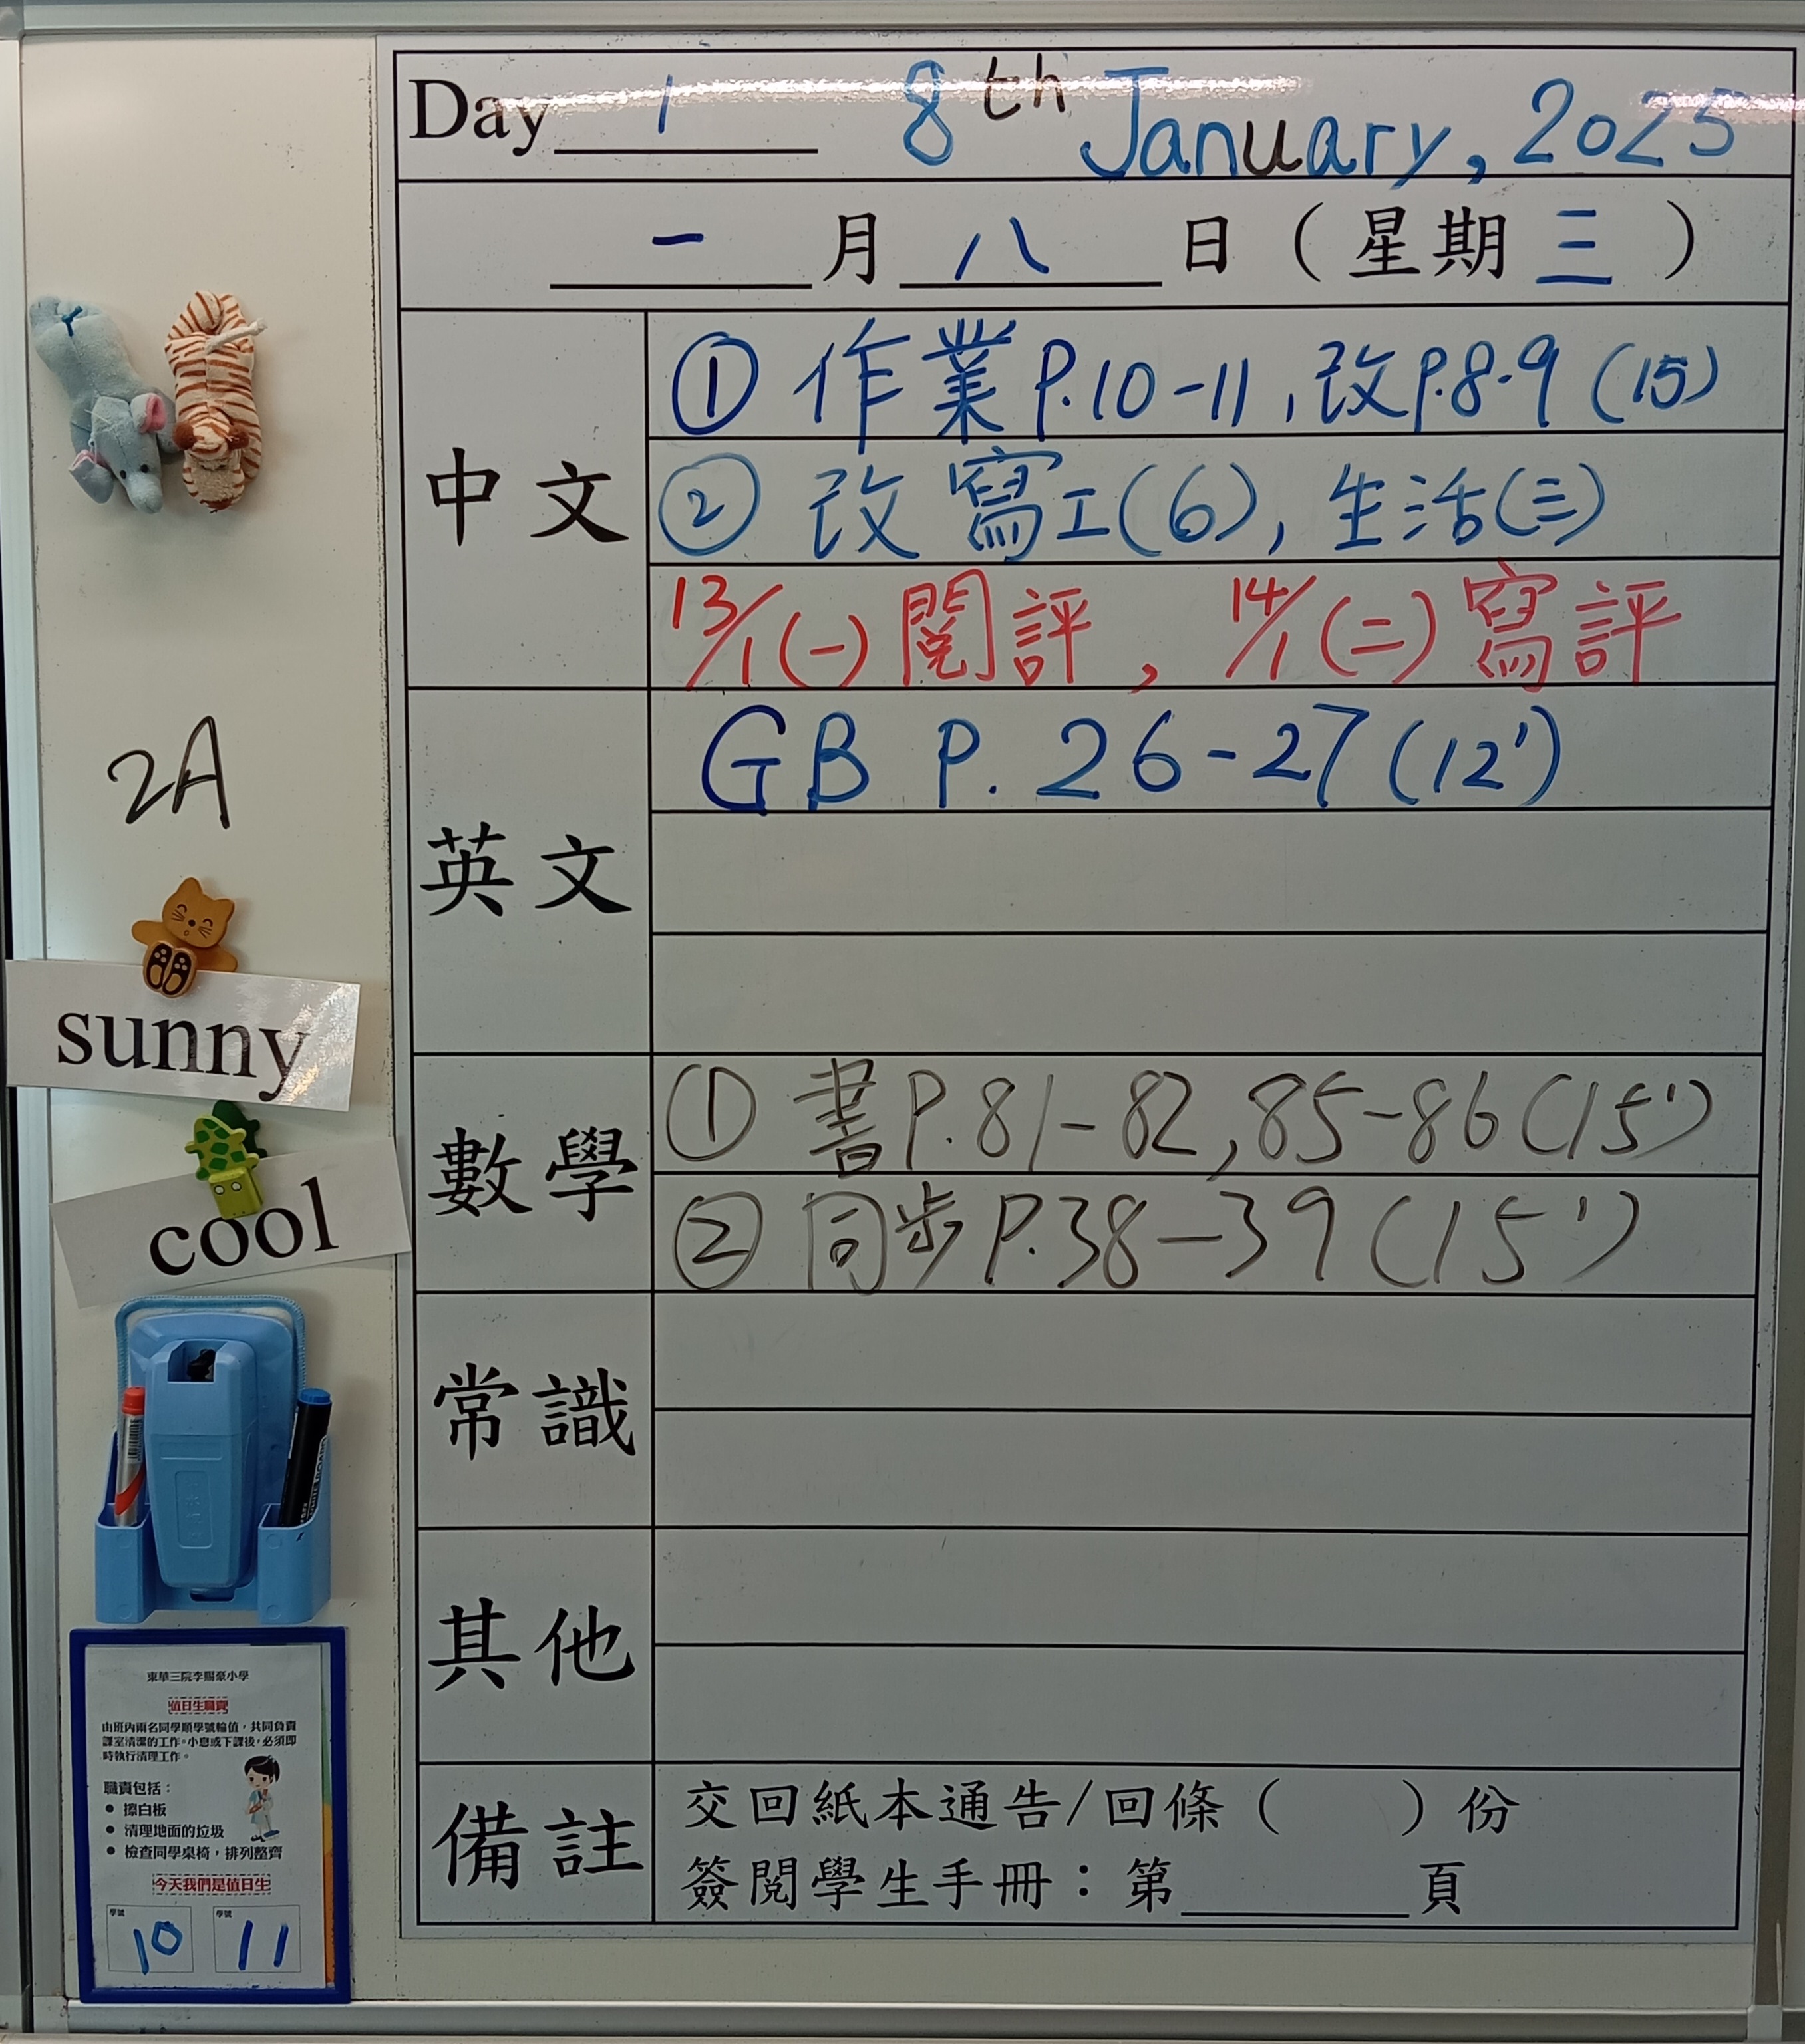 Day 1 8th January, 2025
一月八日（星期三）
中文
① 作業P.10-11,改P.8-9(15)
② 改寫工(6),生活(三)
13/1(一)閱評,14/1(二)寫評
英文
GB P. 26-27(12')
數學
① 書P.81-82,85-86(15')
② 同步P.38-39(15')
常識
其他
備註
交回紙本通告/回條（ ）份
簽閱學生手冊：第 頁
2A
sunny
cool
東華三院李賜豪小學
值日生職責
由班內兩名同學順學號輪值，共同負責
課室清潔的工作。小息或下課後，必須即
時執行清理工作。
職責包括：
● 擦白板
● 清理地面的垃圾
● 檢查同學桌椅，排列整齊
今天我們是值日生
學號 學號
10 11